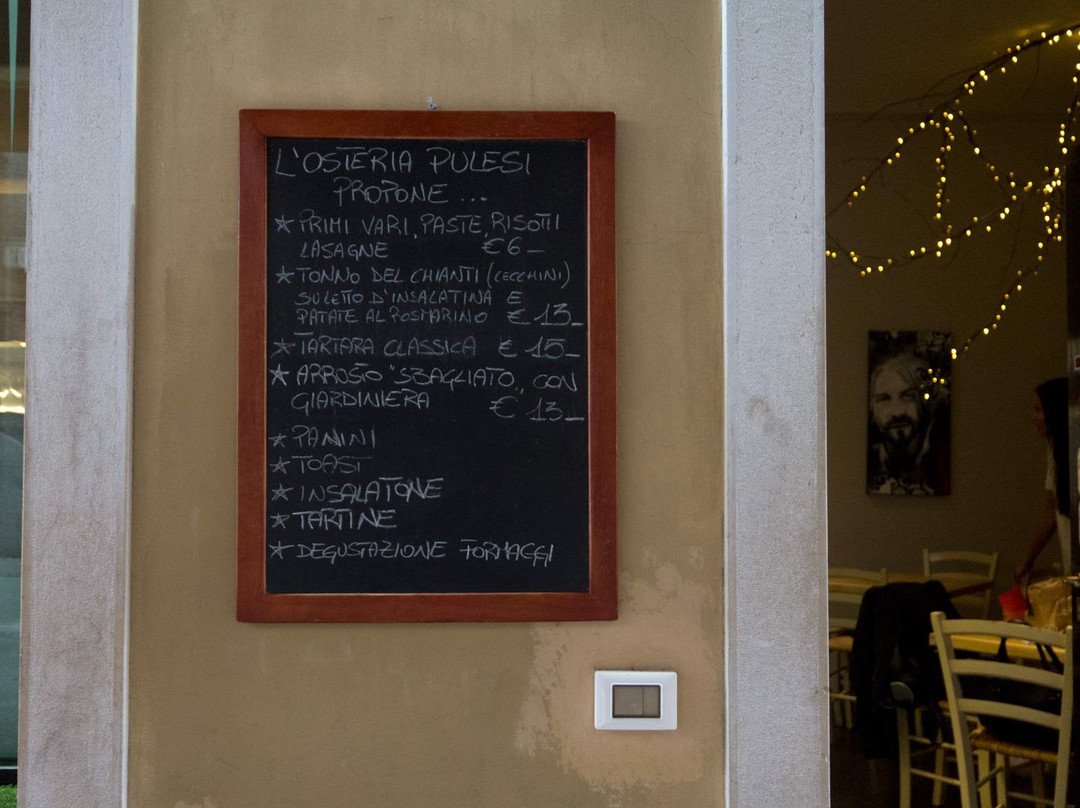 L'OSTERIA PULESI
PROPONE ...
★ PRIMI VARI, PASTE, RISOTTI
LASAGNE €6-
★ TONNO DEL CHIANTI (CECCHINI)
SU LETTO D'INSALATINA E
PATATE AL ROSMARINO € 13-
★ TARTARA CLASSICA € 15-
★ ARROSTO "SBAGLIATO" CON
GIARDINIERA €13-
★ PANINI
★ TOAST
★ INSALATONE
★ TARTINE
★ DEGUSTAZIONE FORMAGGI